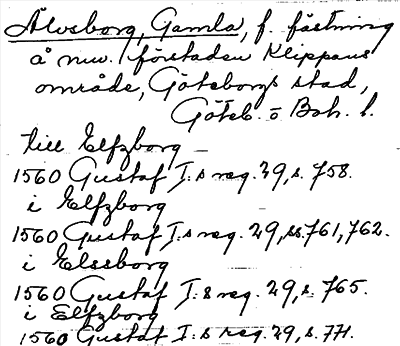 Älvsborg, Gamla, f. fästning
å nuv. förstaden Klippans
område, Göteborgs stad,
Göteb. o Boh. l.
till Elfzborg
1560 Gustaf I:s reg. 29, s. 758.
i Elfzborg
1560 Gustaf I:s reg. 29, ss. 761, 762.
i Elssborg
1560 Gustaf I:s reg. 29, s. 765.
i Elfzborg
1560 Gustaf I:s reg. 29, s. 771.